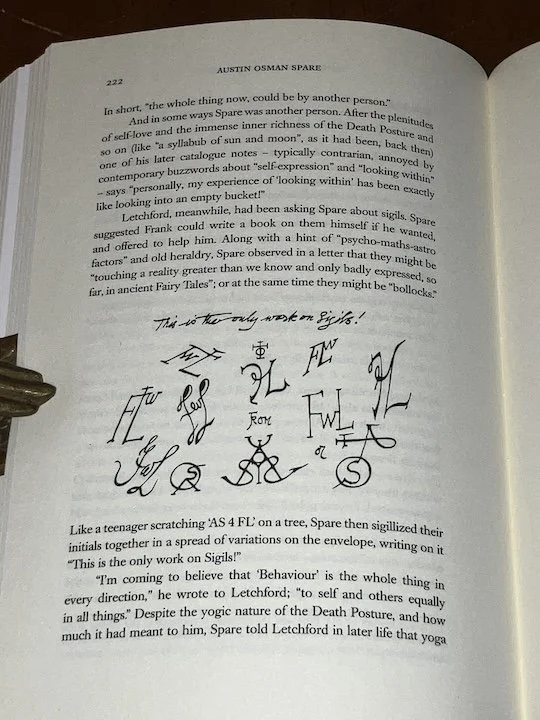 222
AUSTIN OSMAN SPARE
In short, “the whole thing now, could be by another person.”
And in some ways Spare was another person. After the plenitudes
of self-love and the immense inner richness of the Death Posture and
so on (like “a syllabub of sun and moon”, as it had been, back then)
one of his later catalogue notes – typically contrarian, annoyed by
contemporary buzzwords about “self-expression” and “looking within”
– says “personally, my experience of ‘looking within’ has been exactly
like looking into an empty bucket!”
Letchford, meanwhile, had been asking Spare about sigils. Spare
suggested Frank could write a book on them himself if he wanted,
and offered to help him. Along with a hint of “psycho-maths-astro
factors” and old heraldry, Spare observed in a letter that they might be
“touching a reality greater than we know and only badly expressed, so
far, in ancient Fairy Tales”; or at the same time they might be “bollocks.”
This is the only work on Sigils!
FLW
FLW
FwL
from
or
Like a teenager scratching ‘AS 4 FL’ on a tree, Spare then sigillized their
initials together in a spread of variations on the envelope, writing on it
“This is the only work on Sigils!”
“I’m coming to believe that ‘Behaviour’ is the whole thing in
every direction,” he wrote to Letchford; “to self and others equally
in all things.” Despite the yogic nature of the Death Posture, and how
much it had meant to him, Spare told Letchford in later life that yoga